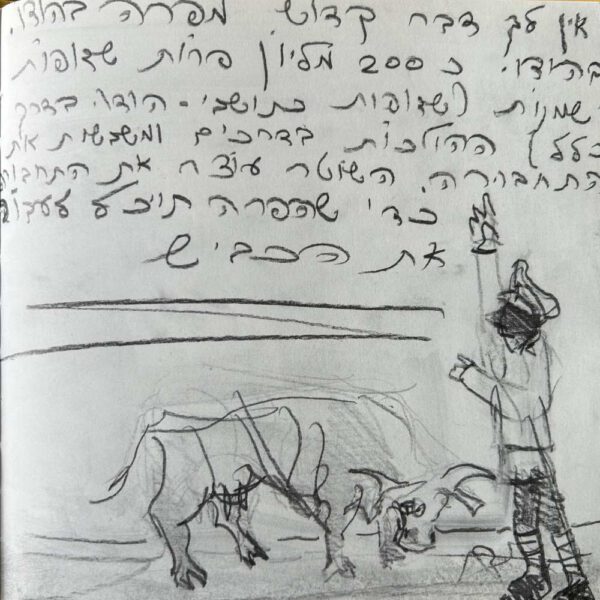 אין לך דבר קדוש מפרה בהודו.
בהודו. כ 200 מליון פרות שדופות
ושמנות (שדופות כתושבי-הודו בדרך
כלל) ההולכות בדרכים ומשבשות את
התחבורה. השוטר עוצר את התחבורה
כדי שהפרה תוכל לעבור
את הכביש